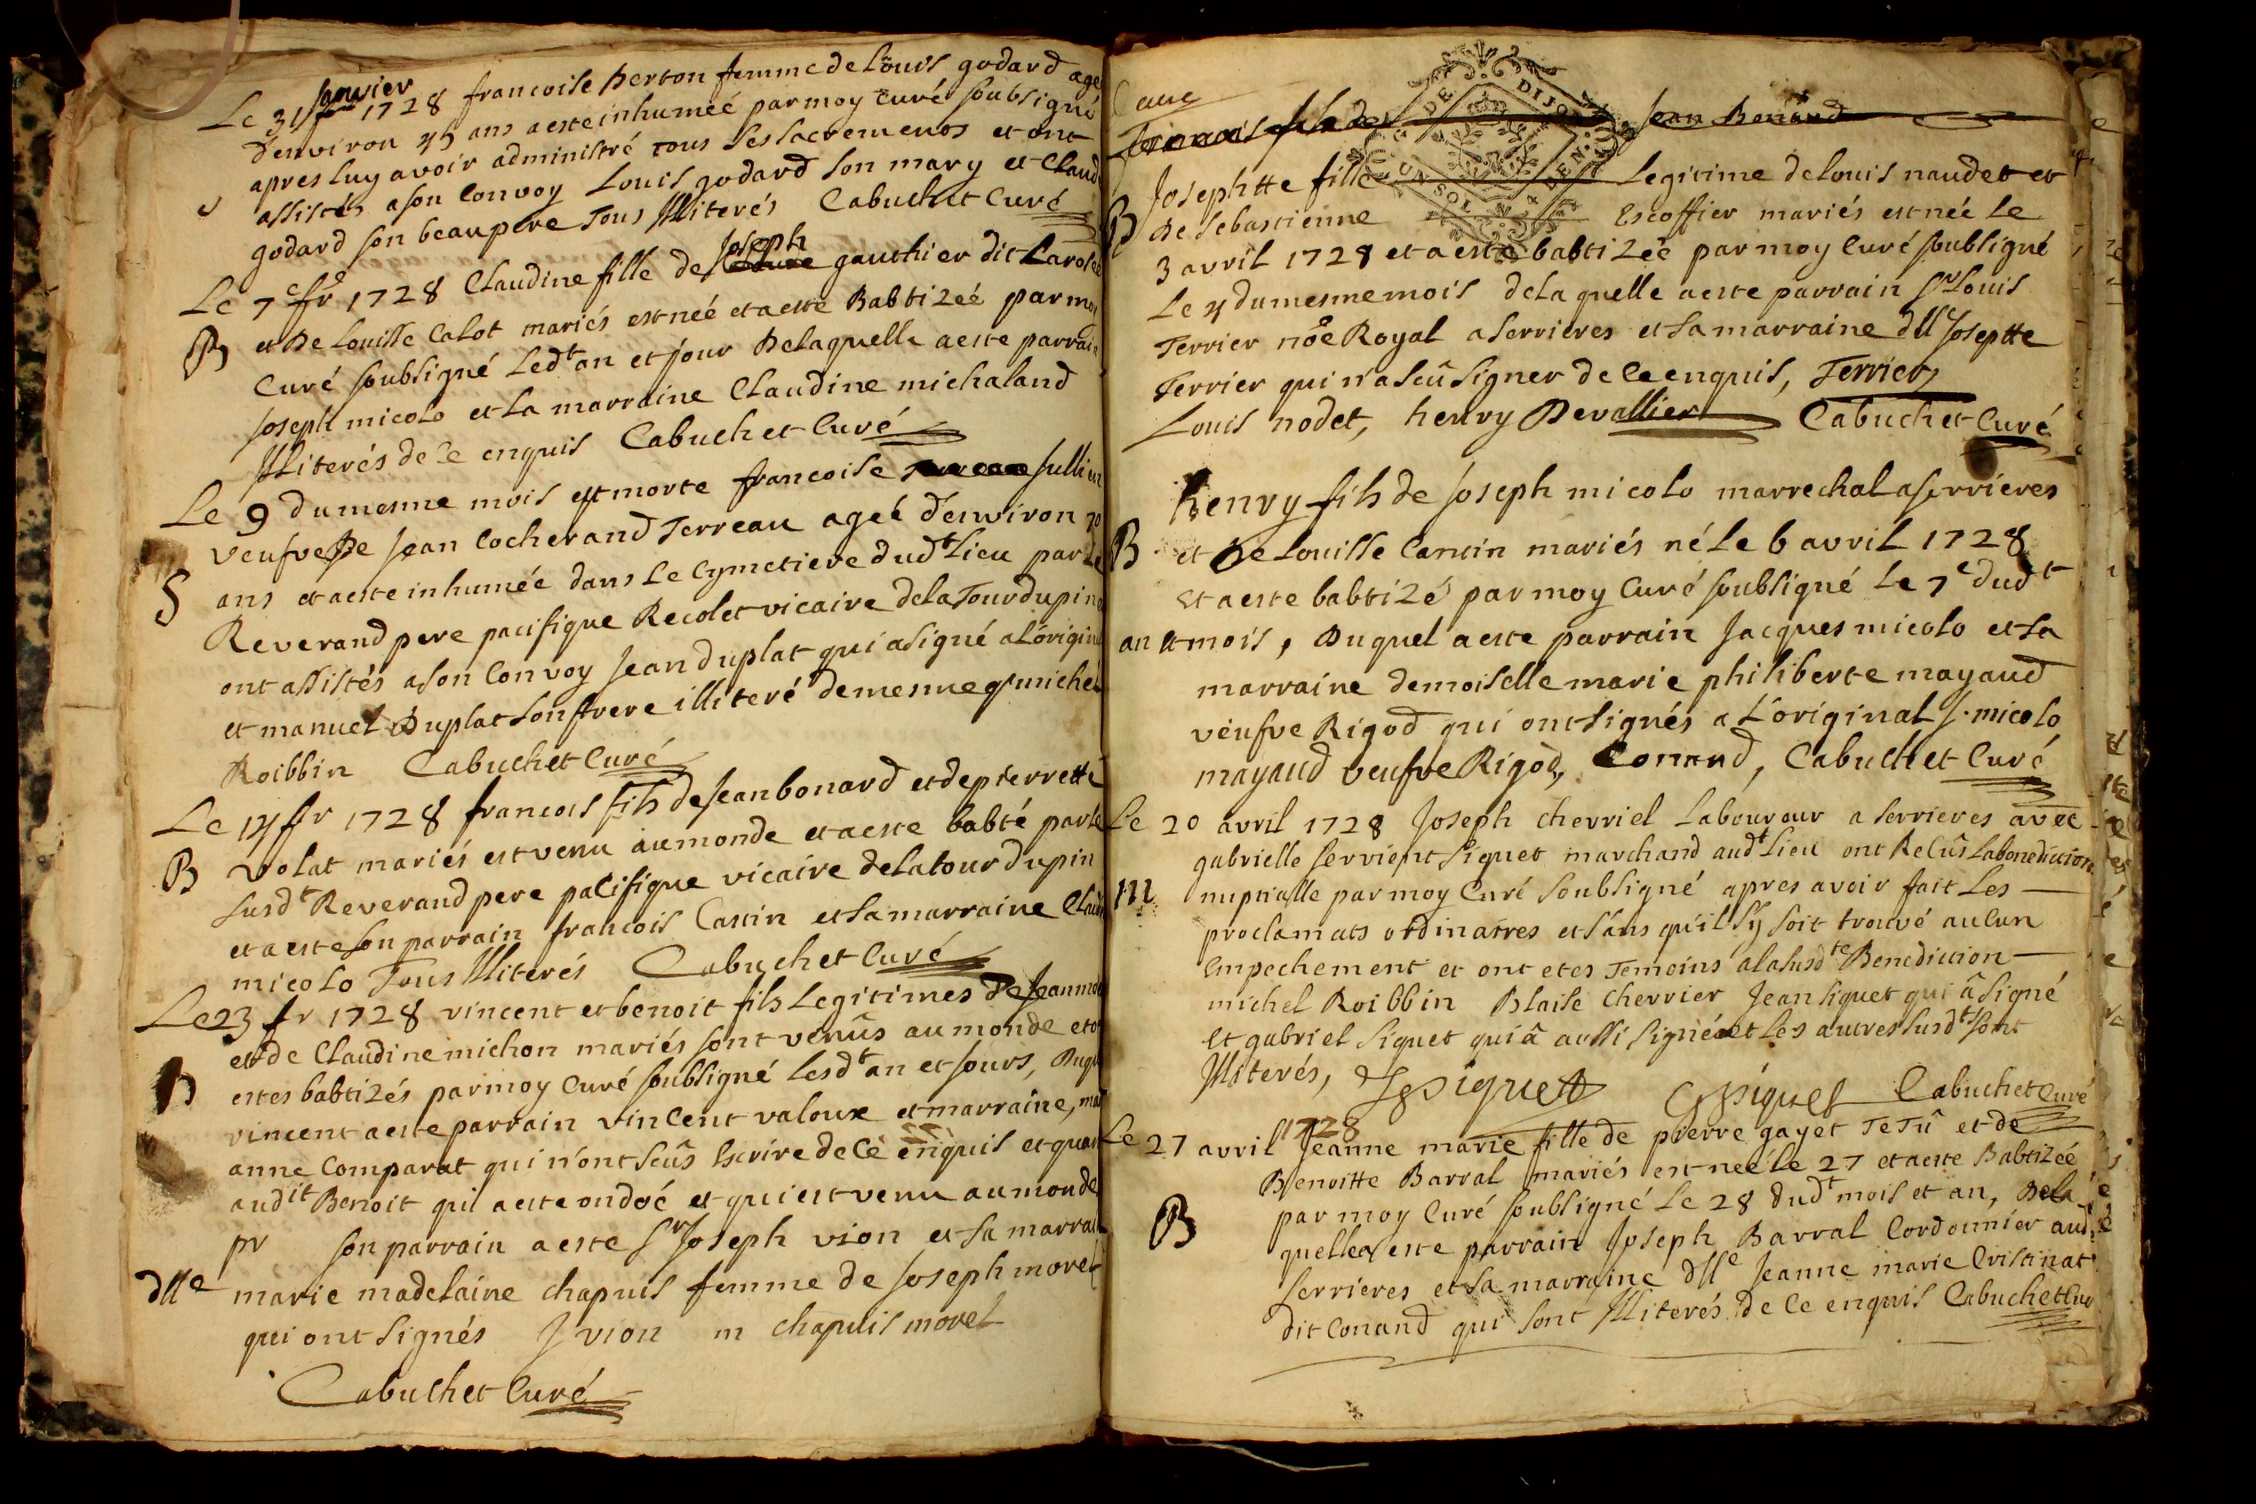 janvier
Le 31 1728 francoise berton femme de Louis godard age
d'environ 45 ans a este inhumeé par moy Curé soubsigné
apres luy avoir administré tous les sacremens et ont
assistés a son Convoy Louis godard son mary et Claud
godard son beaupere Tous Illiterés Cabuchet Curé
Joseph
Le 7e fr 1728 Claudine fille de gauthier dit Larolee
B et De Louisse Calot mariés est neé et a esté Babtizeé par moy
Curé soubsigné Ledt an et jour De laquelle a este parrain
Joseph micolo et La marraine Claudine michaland
Illiterés de Ce enquis Cabuchet Curé
Le 9 du mesme mois est morte francoise Jullien
veufve De Jean Cocherand Terreau ageé d'environ 70
S ans et a este inhumée dans Le Cymetiere dudt Lieu par Le
Reverand pere pacifique Recolet vicaire de la Tour dupin
ont assistés a son Convoy Jean duplat qui a signé a L'origin
et manuel Duplat son frere illiteré de mesme q. michel
Roibbin Cabuchet Curé
Le 14 fr 1728 francois fils de Jean bonard et de pierrette
B volat mariés est venu au monde et a este babté par Le
susdt Reverand pere pacifique vicaire de la tour du pin
et a este son parrain francois Cantin et sa marraine Claud
micolo Tous Illiterés Cabuchet Curé
Le 23 fr 1728 vincent et benoit fils Legitimes De Jean
et de Claudine michon mariés sont venûs au monde et o
B estes babtizés par moy Curé soubsigné Lesdt an et jours, Duq
vincent a este parrain vincent valoux et marraine, ma
anne Comparat qui n'ont sçûs Escrire de Ce enquis et quan
audit Benoit qui a este ondoé et qui est venu au monde
pr son parrain a este Sr Joseph vion et sa marrai
dlle marie madelaine chapuis femme de Joseph morel
qui ont signés J vion m chapuis morel
Cabuchet Curé
francois fils de Jean Bonard
Josephtte fille Legitime de Louis naudet et
B De Sebastienne Escoffier mariés est neé Le
3 avril 1728 et a este babtizeé par moy Curé soubsigné
Le 4 du mesme mois de la quelle a este parrain Sr Louis
Terrier noe Royal a Serrieres et sa marraine dlle Joseptte
Terrier qui n'a scû signer de Ce enquis, Terrier,
Louis nodet, henry Devallier Cabuchet Curé
henry fils de Joseph micolo marrechal a serrieres
B et De Louisse Cantin mariés né Le 6 avril 1728
Et a este babtizé par moy Curé soubsigné Le 7e dudt
an et mois, Duquel a este parrain Jacques micolo et sa
marraine demoiselle marie philiberte mayaud
veufve Rigod qui ont signés a L'original J. micolo
mayaud veufve Rigod, Conand, Cabuchet Curé
Le 20 avril 1728 Joseph cherriel Laboureur a serrieres avec
gabrielle servient siquet marchand audt Lieu ont Reçûs La benediction
m nuptialle par moy Curé soubsigné apres avoir fait Les
proclamats ordinaires et sans qu'il s'y soit trouvé auCun
Empechement et ont etes Temoins a la susdte Benediction
michel Roibbin Blaise Cherrier Jean siquet qui â signé
Et gabriel siquet qui â aussi signé et Les autres susdts sont
Illiterés, Siquet G Siquet Cabuchet Curé
1728
Le 27 avril Jeanne marie fille de pierre gayet TeTû et de
Benoitte Barral mariés est neé le 27 et a este Babtizeé
B par moy Curé soubsigné Le 28 dudt mois et an, De la
quelle a este parrain Joseph Barral Cordonnier aud.
serrieres et sa marraine dlle Jeanne marie Cristinat
dit Conand qui sont Illiterés de Ce enquis Cabuchet Cur